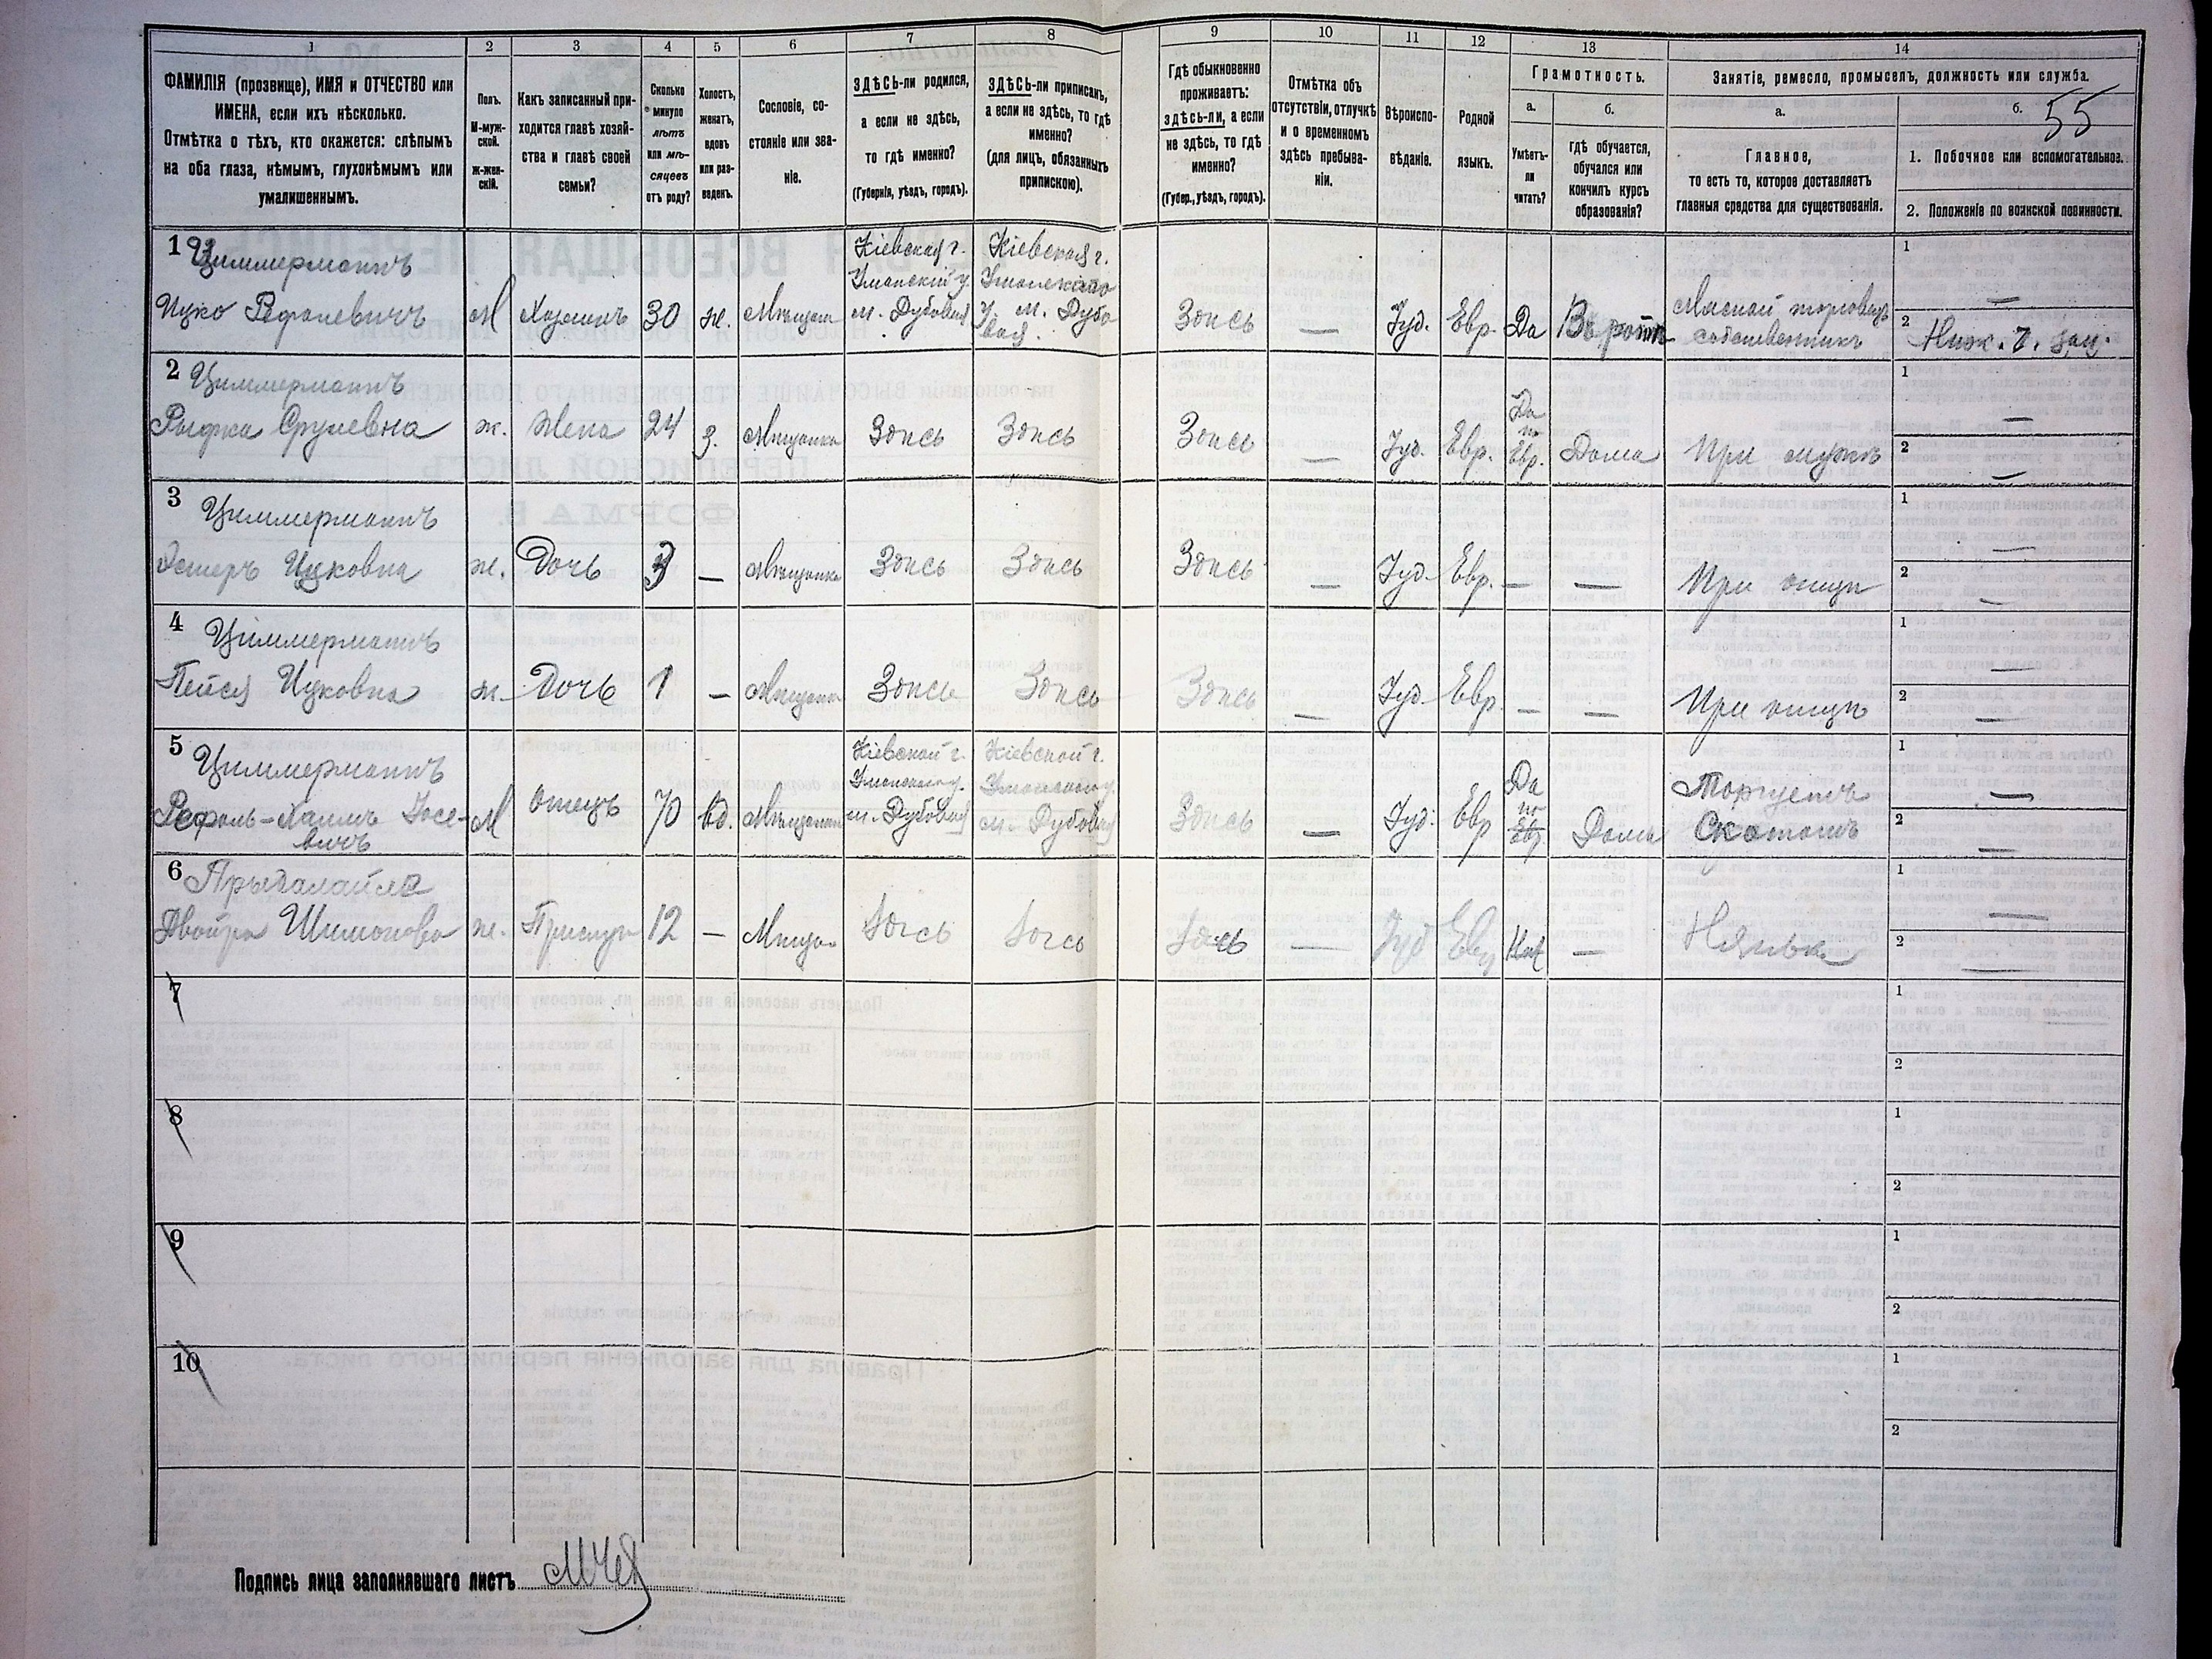 1 2 3 4 5 6 7 8 9 10 11 12 13 14
ФАМИЛІЯ (прозвище), ИМЯ и ОТЧЕСТВО или
ИМЕНА, если ихъ нѣсколько.
Отмѣтка о тѣхъ, кто окажется: слѣпымъ
на оба глаза, нѣмымъ, глухонѣмымъ или
умалишеннымъ.
Полъ.
М-муж-
ской.
Ж-жен-
скій.
Какъ записанный при-
ходится главѣ хозяй-
ства и главѣ своей
семьи?
Сколько
минуло
лѣтъ
или мѣ-
сяцевъ
отъ роду?
Холостъ,
женатъ,
вдовъ
или раз-
веденъ.
Сословіе, со-
стояніе или зва-
ніе.
ЗДѢСЬ-ли родился,
а если не здѣсь,
то гдѣ именно?
(Губернія, уѣздъ, городъ).
ЗДѢСЬ-ли приписанъ,
а если не здѣсь, то гдѣ
именно?
(для лицъ, обязанныхъ
припискою).
Гдѣ обыкновенно
проживаетъ:
здѣсь-ли, а если
не здѣсь, то гдѣ
именно?
(Губер., уѣздъ, городъ).
Отмѣтка объ
отсутствіи, отлучкѣ
и о временномъ
здѣсь пребыва-
ніи.
Вѣроиспо-
вѣданіе.
Родной
языкъ.
Грамотность.
а.
Умѣетъ-
ли
читать?
б.
гдѣ обучается,
обучался или
кончилъ курсъ
образованія?
Занятіе, ремесло, промыселъ, должность или служба.
а.
Главное,
то есть то, которое доставляетъ
главныя средства для существованія.
б.
55
1. Побочное или вспомогательное.
2. Положеніе по воинской повинности.
1
Циммерманъ
Ицко Рефолевичъ
М
Хозяинъ
30
ж.
Мѣщан.
Кіевская г.
Уманскій у.
м. Дубовая
Кіевская г.
Уманскаго
у. м. Дубо
вая.
Здѣсь
—
Іуд.
Евр.
Да
Въ ротѣ
Мясной торговецъ
собственникъ
1
—
2
Ниж. ч. зап.
2
Циммерманъ
Рыфка Срулевна
ж.
Жена
24
з.
Мѣщанка
Здѣсь
Здѣсь
Здѣсь
—
Іуд.
Евр.
Да
по
Евр.
Дома
При мужѣ
1
—
2
—
3
Циммерманъ
Эстеръ Ицковна
ж.
Дочь
3
—
Мѣщанка
Здѣсь
Здѣсь
Здѣсь
—
Іуд.
Евр.
—
—
При отцѣ
1
—
2
—
4
Циммерманъ
Пейся Ицковна
ж.
Дочь
1
—
Мѣщанка
Здѣсь
Здѣсь
Здѣсь
—
Іуд.
Евр.
—
—
При отцѣ
1
—
2
—
5
Циммерманъ
Рефоль-Хаимъ Іосе-
вичъ
М
Отецъ
70
вд.
Мѣщанин
Кіевской г.
Уманского у.
м. Дубовая
Кіевской г.
Уманского у.
м. Дубовая
Здѣсь
—
Іуд.
Евр
Да
по
Евр.
Дома
Торгуетъ
Скотомъ
1
—
2
—
6
Двойра Шимонова
ж.
Прислуга
12
—
Мѣща-
Здѣсь
Здѣсь
Здѣсь
—
Іуд
Евр
Нѣт
—
Нянька
1
—
2
—
7
1
2
8
1
2
9
1
2
10
1
2
Подпись лица заполнявшаго листъ